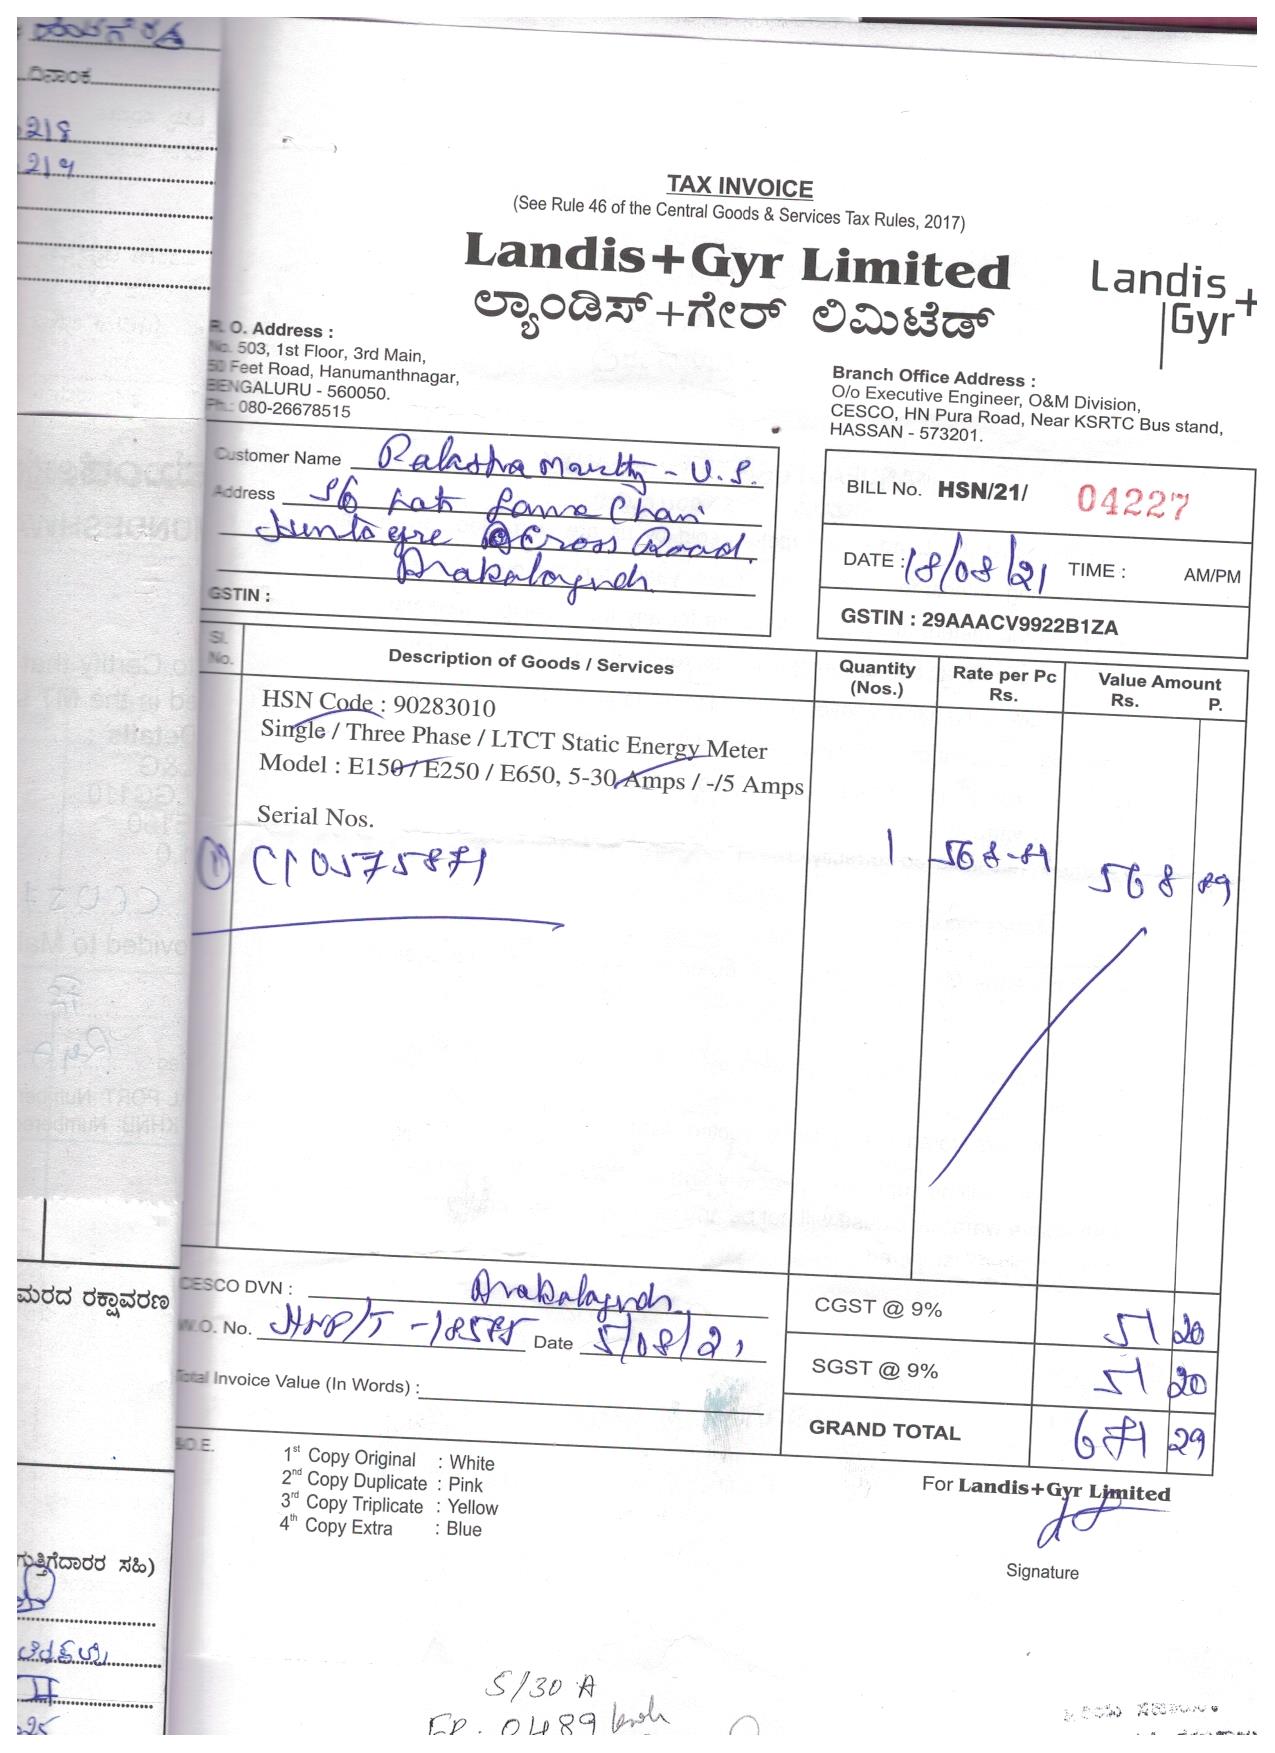 ದಿನಾಂಕ
218
219
TAX INVOICE
(See Rule 46 of the Central Goods & Services Tax Rules, 2017)
Landis+Gyr Limited
ಲ್ಯಾಂಡಿಸ್+ಗೇರ್ ಲಿಮಿಟೆಡ್
Landis
Gyr+
R. O. Address :
No. 503, 1st Floor, 3rd Main,
50 Feet Road, Hanumanthnagar,
BENGALURU - 560050.
Ph.: 080-26678515
Branch Office Address :
O/o Executive Engineer, O&M Division,
CESCO, HN Pura Road, Near KSRTC Bus stand,
HASSAN - 573201.
Customer Name Raksha - U.S.
Address S/o
Cross Road
GSTIN :
BILL No. HSN/21/ 04227
DATE : 18/08/21 TIME : AM/PM
GSTIN : 29AAACV9922B1ZA
Sl. No. Description of Goods / Services Quantity (Nos.) Rate per Pc Rs. Value Amount Rs. P.
HSN Code : 90283010
Single / Three Phase / LTCT Static Energy Meter
Model : E150 / E250 / E650, 5-30 Amps / -/5 Amps
Serial Nos.
1) C10575871 1 568-89 568 89
CESCO DVN :
W.O. No. Date 5/08/21
Total Invoice Value (In Words) :
CGST @ 9% 51 20
SGST @ 9% 51 20
GRAND TOTAL 671 29
S.O.E.
1st Copy Original : White
2nd Copy Duplicate : Pink
3rd Copy Triplicate : Yellow
4th Copy Extra : Blue
For Landis+Gyr Limited
Signature
ಮರದ ರಕ್ಷಾವರಣ
ಗುತ್ತಿಗೆದಾರರ ಸಹಿ)
II
5/30 A
FR. 0489 kwh